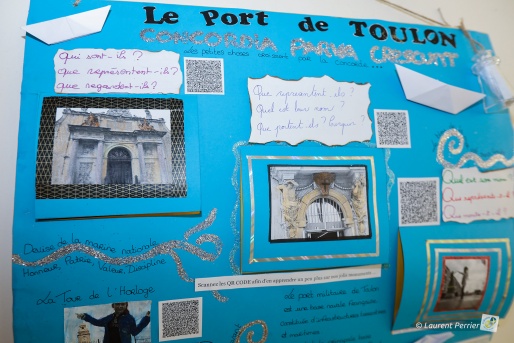 Le Port de TOULON
CONCORDIA PARVA CRESCUNT
Les petites choses croissent par la concorde
Qui sont-ils?
Que représentent-ils?
Que regardent-ils?
Que représentent-ils?
Quel est leur nom?
Que portent-ils?
Quel est son nom?
Que représente-t-il?
Devise de la marine nationale
Honneur, Patrie, Valeur, Discipline
La Tour de l'Horloge
Scannez les QR CODE afin d'en apprendre un peu plus sur
Le port militaire de Toulon
est une base navale française
© Laurent Perrier